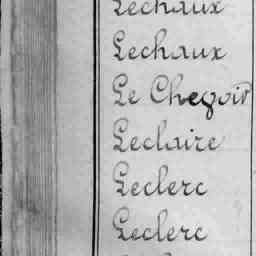 Lechaux
Lechaux
Le Chegoir
Leclaire
Leclerc
Leclerc